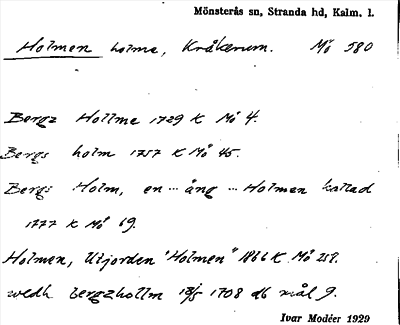 Mönsterås sn, Stranda hd, Kalm. l.
Holmen holme, Kråkerum. Mö 580
Bergz Hollme 1729 K Mö 4.
Bergs holm 1757 K Mö 45.
Bergs Holm, en ... äng ... Holmen kallad
1777 K Mö 69.
Holmen, Utjorden "Holmen" 1866 K Mö 259.
wedh bergzhollm 18/5 1708 db mål 9.
Ivar Modéer 1929